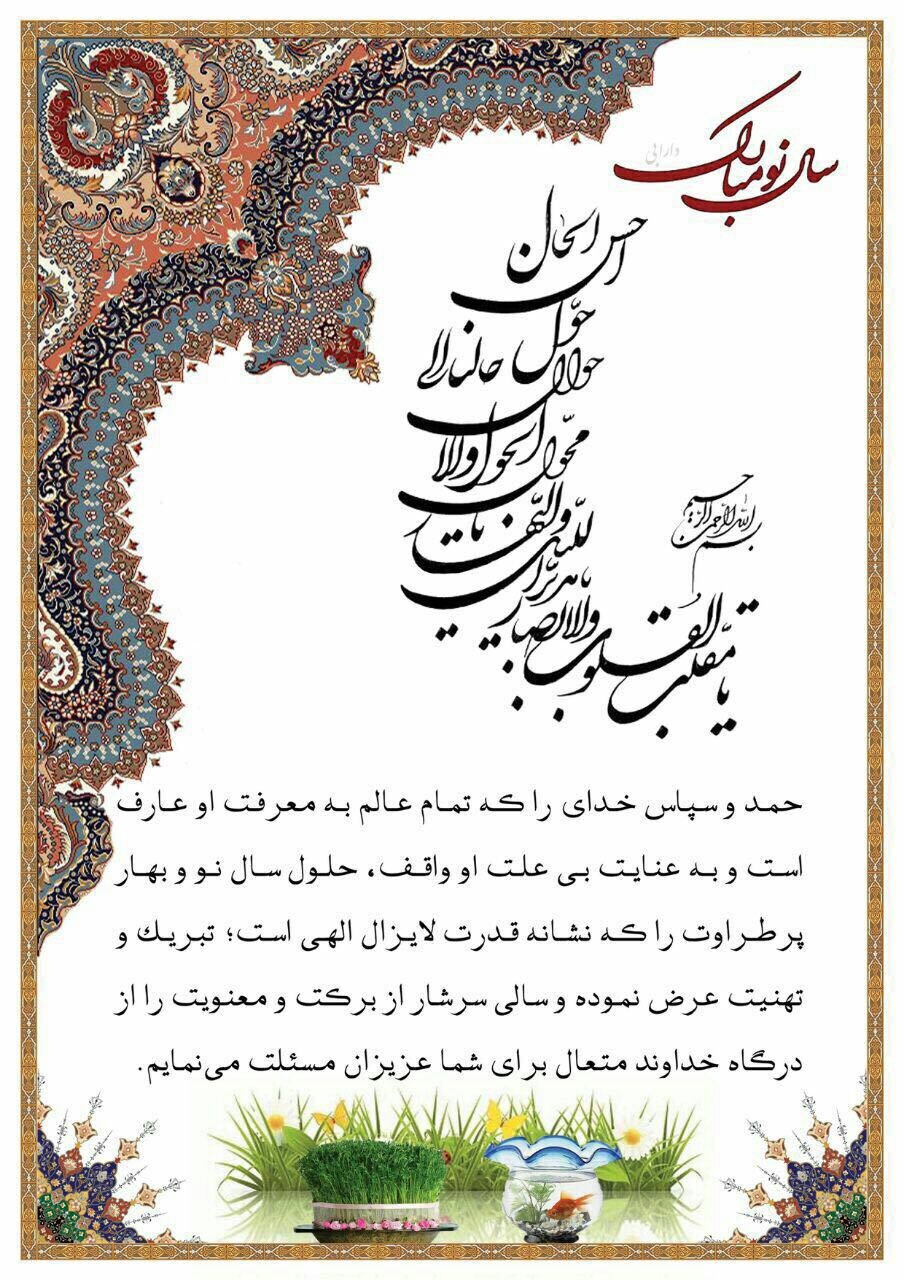 سال نو مبارک
دارابی
بسم الله الرحمن الرحیم
یا مقلب القلوب والابصار
یا مدبر اللیل و النهار
یا محول الحول والاحوال
حول حالنا الی
احسن الحال
حمد و سپاس خدای را که تمام عالم به معرفت او عارف
است و به عنایت بی علت او واقف، حلول سال نو و بهار
پرطراوت را که نشانه قدرت لایزال الهی است؛ تبریك و
تهنیت عرض نموده و سالی سرشار از برکت و معنویت را از
درگاه خداوند متعال برای شما عزیزان مسئلت می‌نمایم.